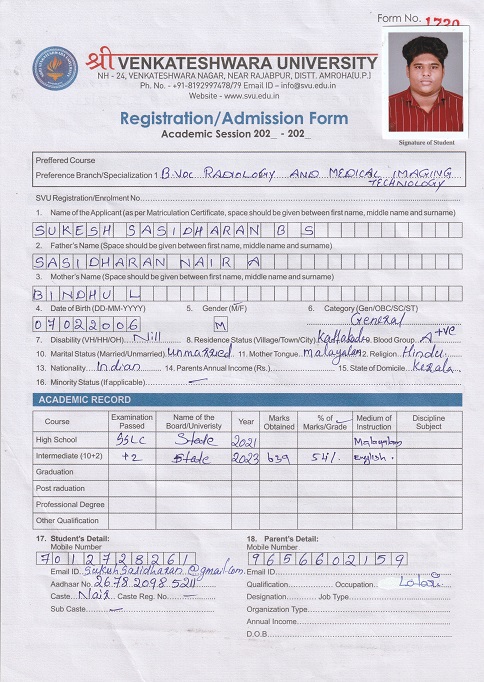 Form No. 1720
श्री VENKATESHWARA UNIVERSITY
NH - 24, VENKATESHWARA NAGAR, NEAR RAJABPUR, DISTT. AMROHA(U.P.)
Ph. No. - +91-8192997478/79 Email ID – info@svu.edu.in
Website - www.svu.edu.in
Registration/Admission Form
Academic Session 202_ - 202_
Signature of Student
Preffered Course
Preference Branch/Specialization 1 B.VOC RADIOLOGY AND MEDICAL IMAGING
TECHNOLOGY
SVU Registration/Enrolment No.
1. Name of the Applicant (as per Matriculation Certificate, space should be given between first name, middle name and surname)
SUKESH SASIDHARAN B S
2. Father's Name (Space should be given between first name, middle name and surname)
SASIDHARAN NAIR A
3. Mother's Name (Space should be given between first name, middle name and surname)
BINDHU L
4. Date of Birth (DD-MM-YYYY) 5. Gender (M/F) 6. Category (Gen/OBC/SC/ST)
07022006 M General
7. Disability (VH/HH/OH) Nill 8. Residence Status (Village/Town/City) 9. Blood Group A +ve
10. Marital Status (Married/Unmarried) unmarried 11. Mother Tongue malayalam 12. Religion Hindu
13. Nationality Indian 14. Parents Annual Income (Rs.) 15. State of Domicile Kerala
16. Minority Status (If applicable) —
ACADEMIC RECORD
Course Examination Passed Name of the Board/Univeristy Year Marks Obtained % of Marks/Grade Medium of Instruction Discipline Subject
High School SSLC State 2021 Malayalam
Intermediate (10+2) +2 State 2023 639 54% English .
Graduation
Post raduation
Professional Degree
Other Qualification
17. Student's Detail: 18. Parent's Detail:
Mobile Number Mobile Number
7012728261 9656602159
Email ID. @gmail.com Email ID
Aadhaar No. 2678 2098 5211 Qualification Occupation
Caste Nair Caste Reg. No. — Designation Job Type
Sub Caste — Organization Type
Annual Income
D.O.B